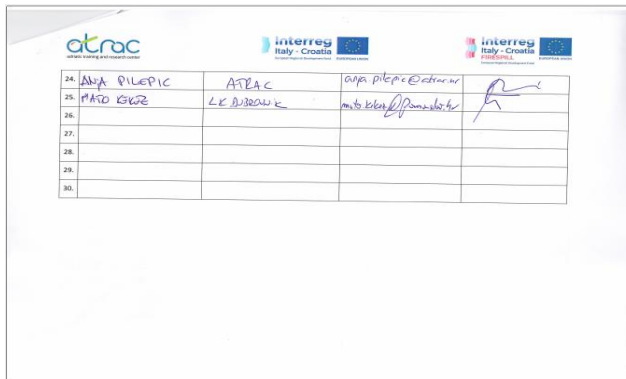 atrac
adriatic training and research centre
Interreg
Italy - Croatia
European Regional Development Fund EUROPEAN UNION
Interreg
Italy - Croatia
FIRESPILL
European Regional Development Fund EUROPEAN UNION
24. ANJA PILEPIC ATRAC anja.pilepic@atrac.hr
25. MATO KEKEZ LK DUBROVNIK
26.
27.
28.
29.
30.